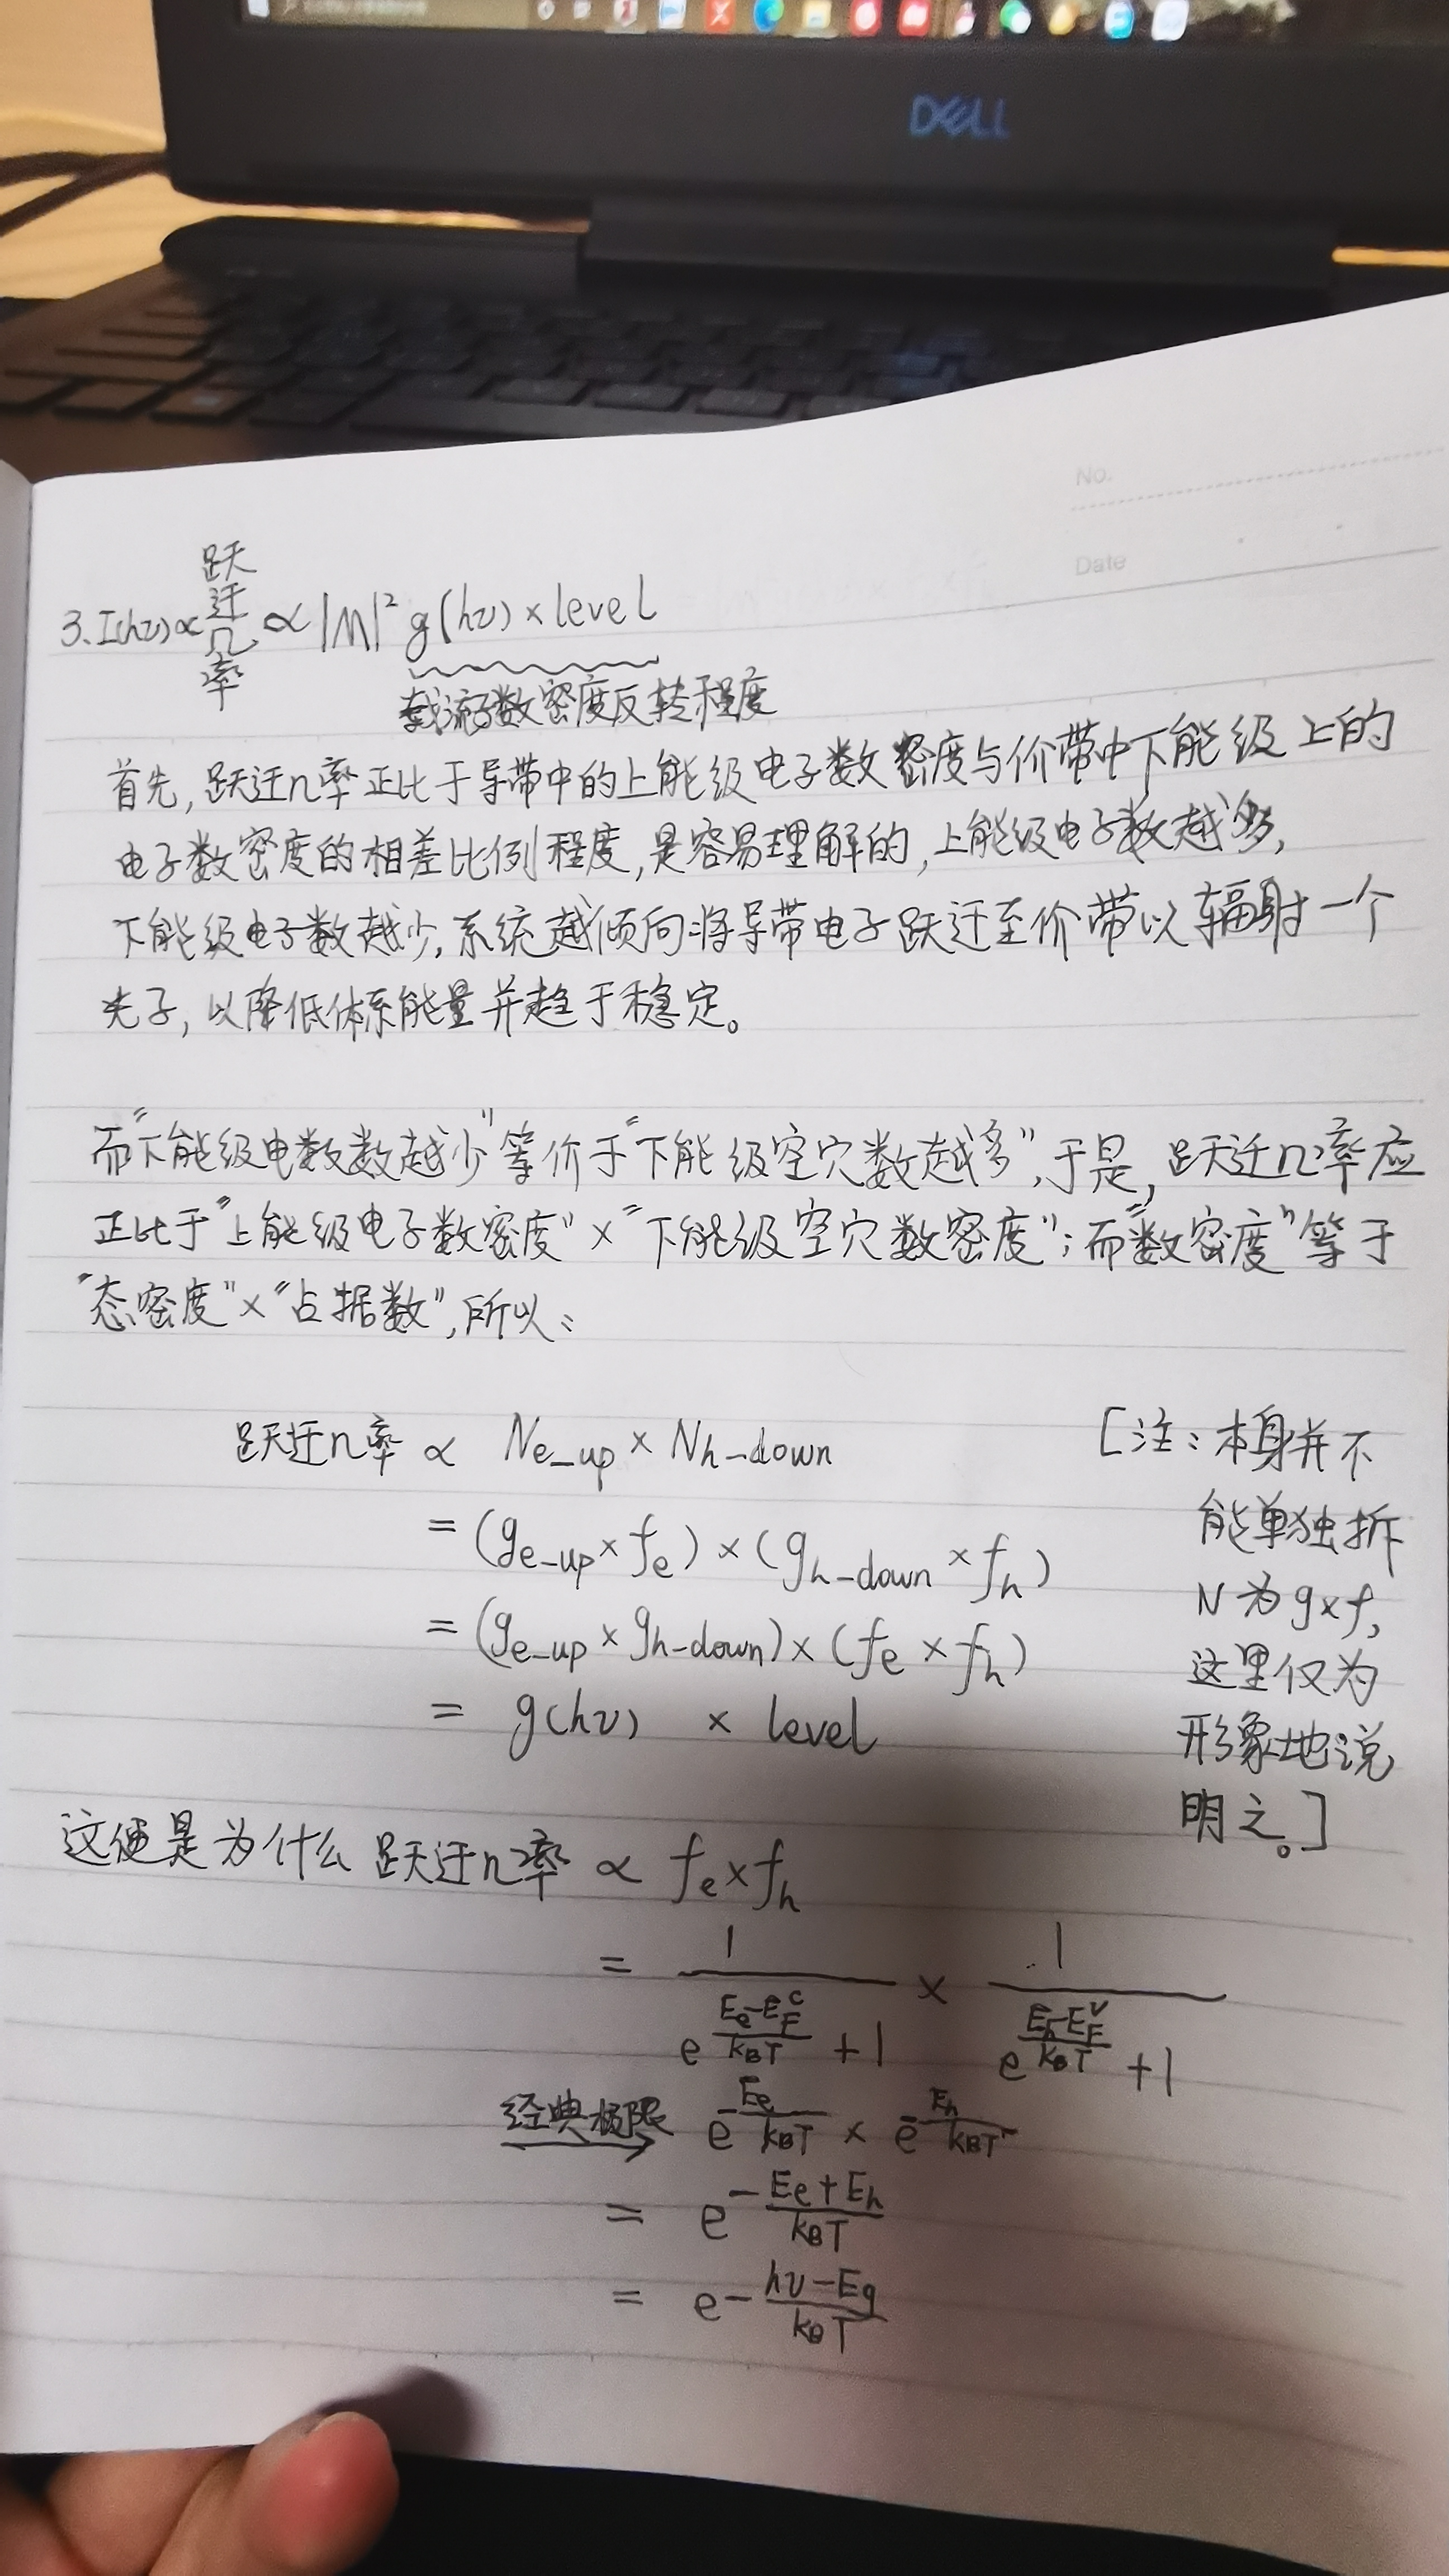 DELL
No.
Date
3. I(hν) ∝ 跃迁几率 ∝ |M|² g(hν) × level
载流子数密度反转程度
首先, 跃迁几率正比于导带中的上能级电子数密度与价带中下能级上的
电子数密度的相差比例程度, 是容易理解的, 上能级电子数越多,
下能级电子数越少, 系统越倾向将导带电子跃迁至价带以辐射一个
光子, 以降低体系能量并趋于稳定。
而"下能级电数数越少"等价于"下能级空穴数越多", 于是, 跃迁几率应
正比于"上能级电子数密度"×"下能级空穴数密度"; 而"数密度"等于
"态密度"×"占据数", 所以:
跃迁几率 ∝ Ne_up × Nh-down
= (ge-up × fe) × (gh-down × fh)
= (ge-up × gh-down) × (fe × fh)
= g(hν) × level
[注: 本身并不
能单独拆
N为g×f,
这里仅为
形象地说
明之。]
这便是为什么 跃迁几率 ∝ fe × fh
= 1/(e^((Ee-E_F^c)/(kBT)) + 1) × 1/(e^((Eh-E_F^v)/(kBT)) + 1)
经典极限→ e^(-Ee/(kBT)) × e^(-Eh/(kBT))
= e^(-(Ee+Eh)/(kBT))
= e^(-(hν-Eg)/(kBT))